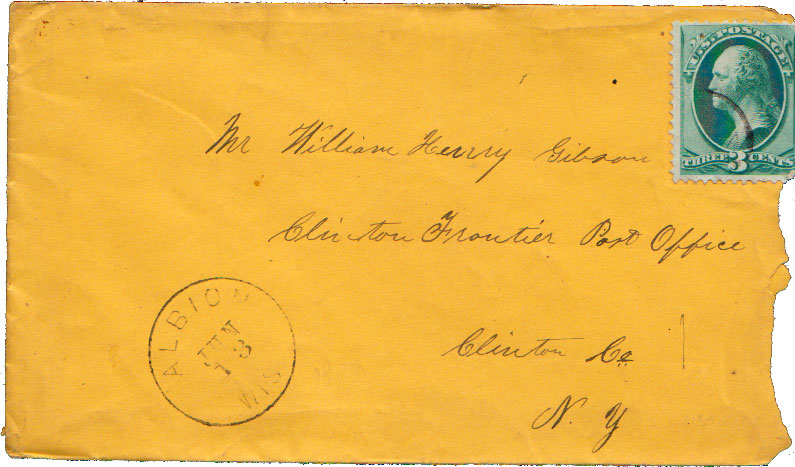 U.S. POSTAGE
THREE 3 CENTS
Mr William Henry Gibson
Clinton Frontier Post Office
Clinton Co.
N. Y
ALBION
JUN
13
WIS.